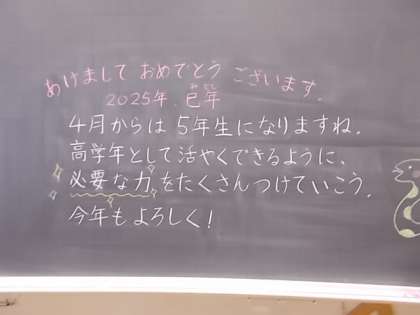 あけまして おめでとう ございます。
2025年 巳年
4月からは 5年生になりますね。
高学年として活やくできるように、
必要な力をたくさんつけていこう。
今年もよろしく!